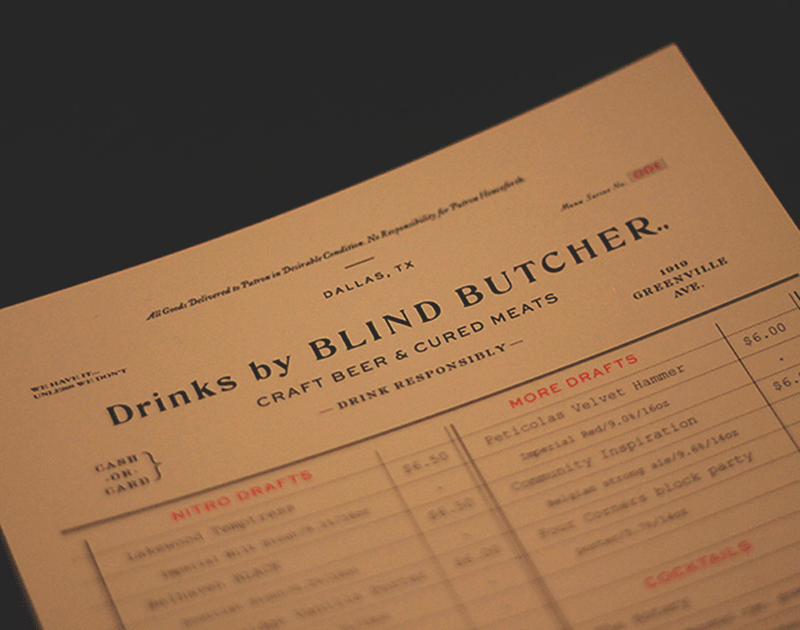 All Goods Delivered to Patron in Desirable Condition. No Responsibility for Patron Henceforth.
Menu Series No.
DALLAS, TX
Drinks by BLIND BUTCHER..
CRAFT BEER & CURED MEATS
—DRINK RESPONSIBLY—
1919
GREENVILLE
AVE.
WE HAVE IT...
UNLESS WE DON'T
CASH
-OR-
CARD
NITRO DRAFTS
Lakewood Temptress
$6.50
Imperial Milk Stout/9.1%/16oz
Belhaven BLACK
$6.50
MORE DRAFTS
Peticolas Velvet Hammer
$6.00
Imperial Red/9.0%/16oz
Community Inspiration
Belgian strong ale/9.6%/14oz
Four Corners block party
porter/5.7%/16oz
COCKTAILS